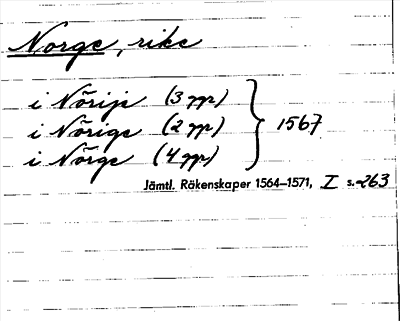 Norge, rike
i Nõrije (3 ggr)
i Nõrige (2 ggr)
i Nõrge (4 ggr)
} 1567
Jämtl. Räkenskaper 1564–1571, I s. 263